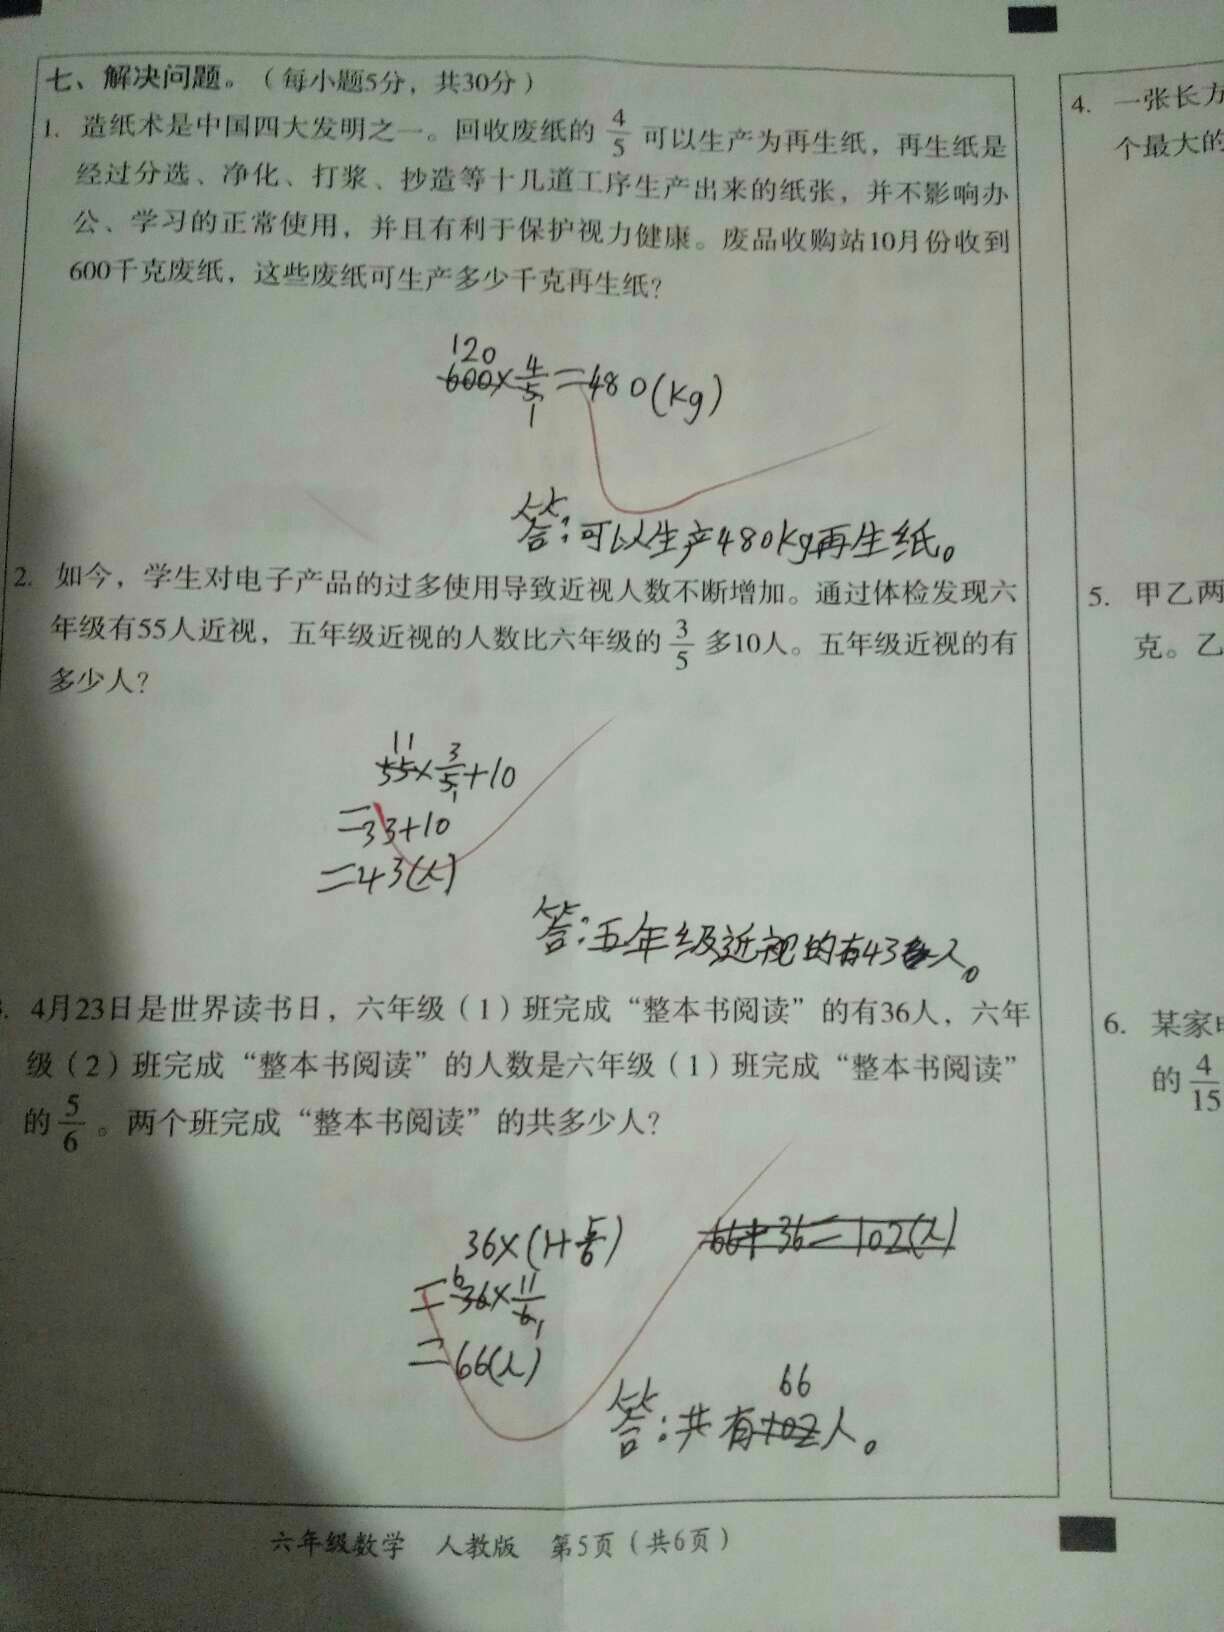 七、解决问题。（每小题5分，共30分）
1. 造纸术是中国四大发明之一。回收废纸的 4/5 可以生产为再生纸，再生纸是
经过分选、净化、打浆、抄造等十几道工序生产出来的纸张，并不影响办
公、学习的正常使用，并且有利于保护视力健康。废品收购站10月份收到
600千克废纸，这些废纸可生产多少千克再生纸？
120
600×4/5=480(kg)
1
答：可以生产480kg再生纸。
2. 如今，学生对电子产品的过多使用导致近视人数不断增加。通过体检发现六
年级有55人近视，五年级近视的人数比六年级的 3/5 多10人。五年级近视的有
多少人？
11
55×3/5+10
1
=33+10
=43(人)
答：五年级近视的有43人。
4月23日是世界读书日，六年级（1）班完成“整本书阅读”的有36人，六年
级（2）班完成“整本书阅读”的人数是六年级（1）班完成“整本书阅读”
的 5/6 。两个班完成“整本书阅读”的共多少人？
36×(1+5/6)
66+36=102(人)
6
=36×11/6
1
=66(人)
66
答：共有102人。
六年级数学 人教版 第5页（共6页）
4. 一张长方
个最大的
5. 甲乙两
克。乙
6. 某家
的 4/15